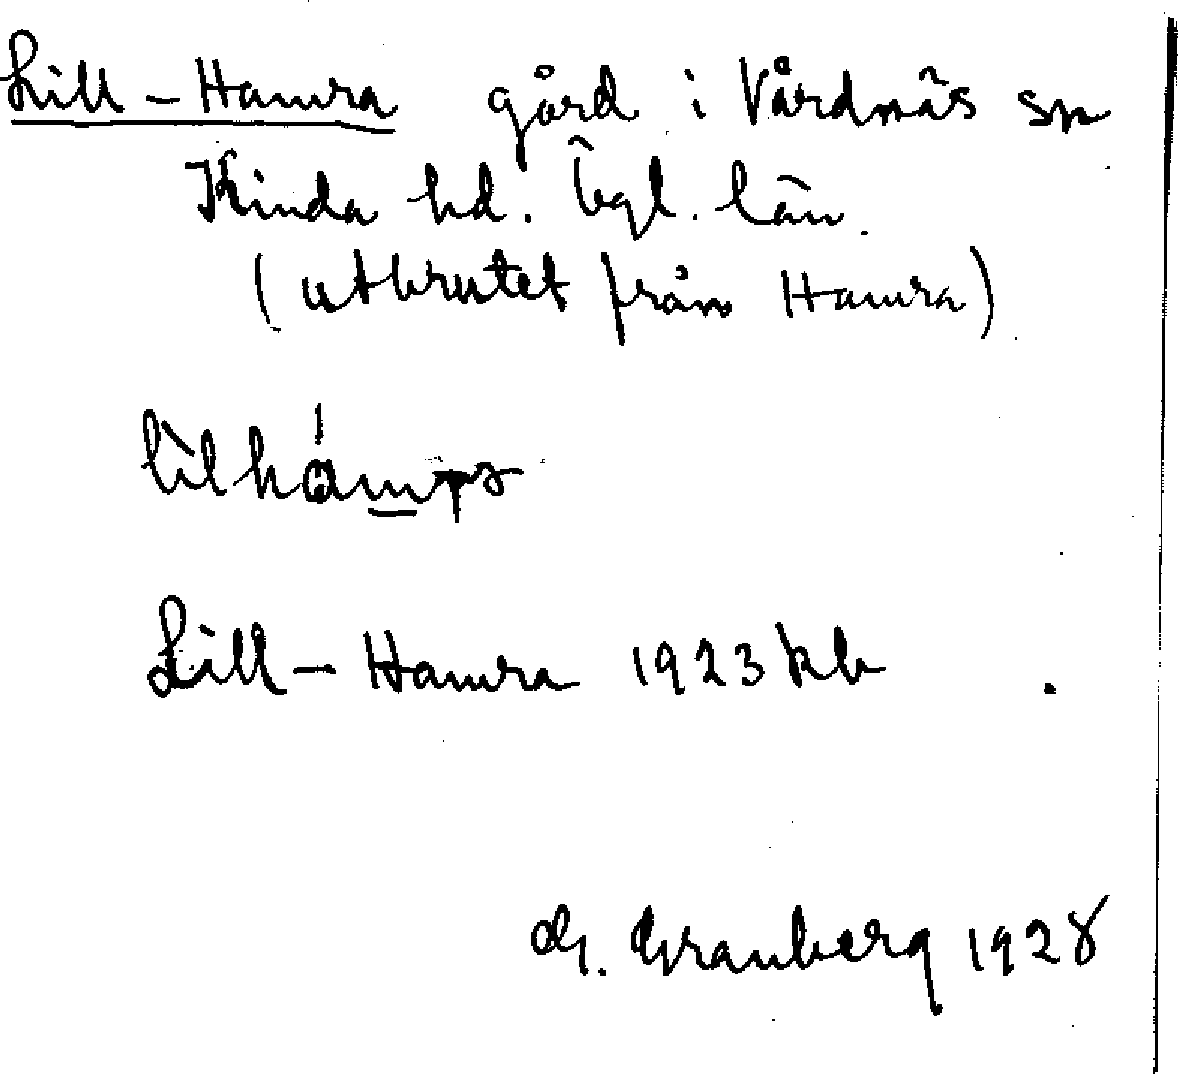 Lill-Hamra gård i Vårdnäs sn
Kinda hd. Ögl. län.
(utbrutet från Hamra)
Lill-Hamra 1923 kb
G. Granberg 1928